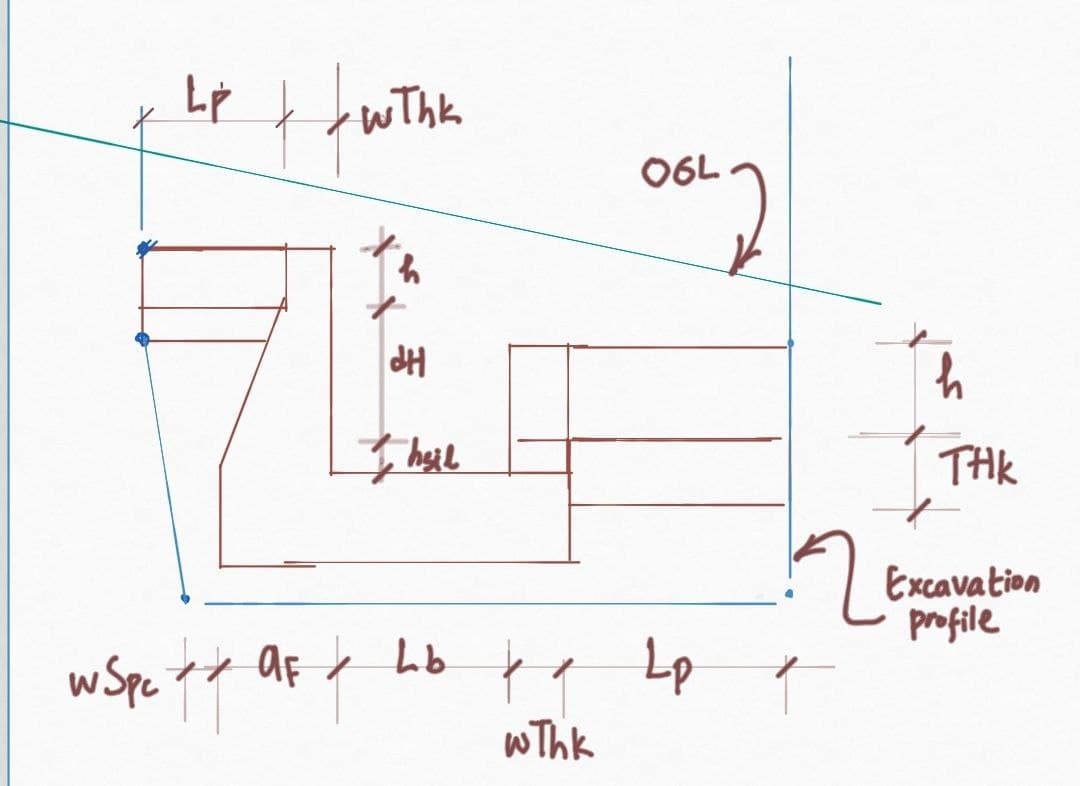 Lp
wThk
OGL
h
dH
hsil
h
THk
Excavation
profile
wSpc
aF
Lb
Lp
wThk